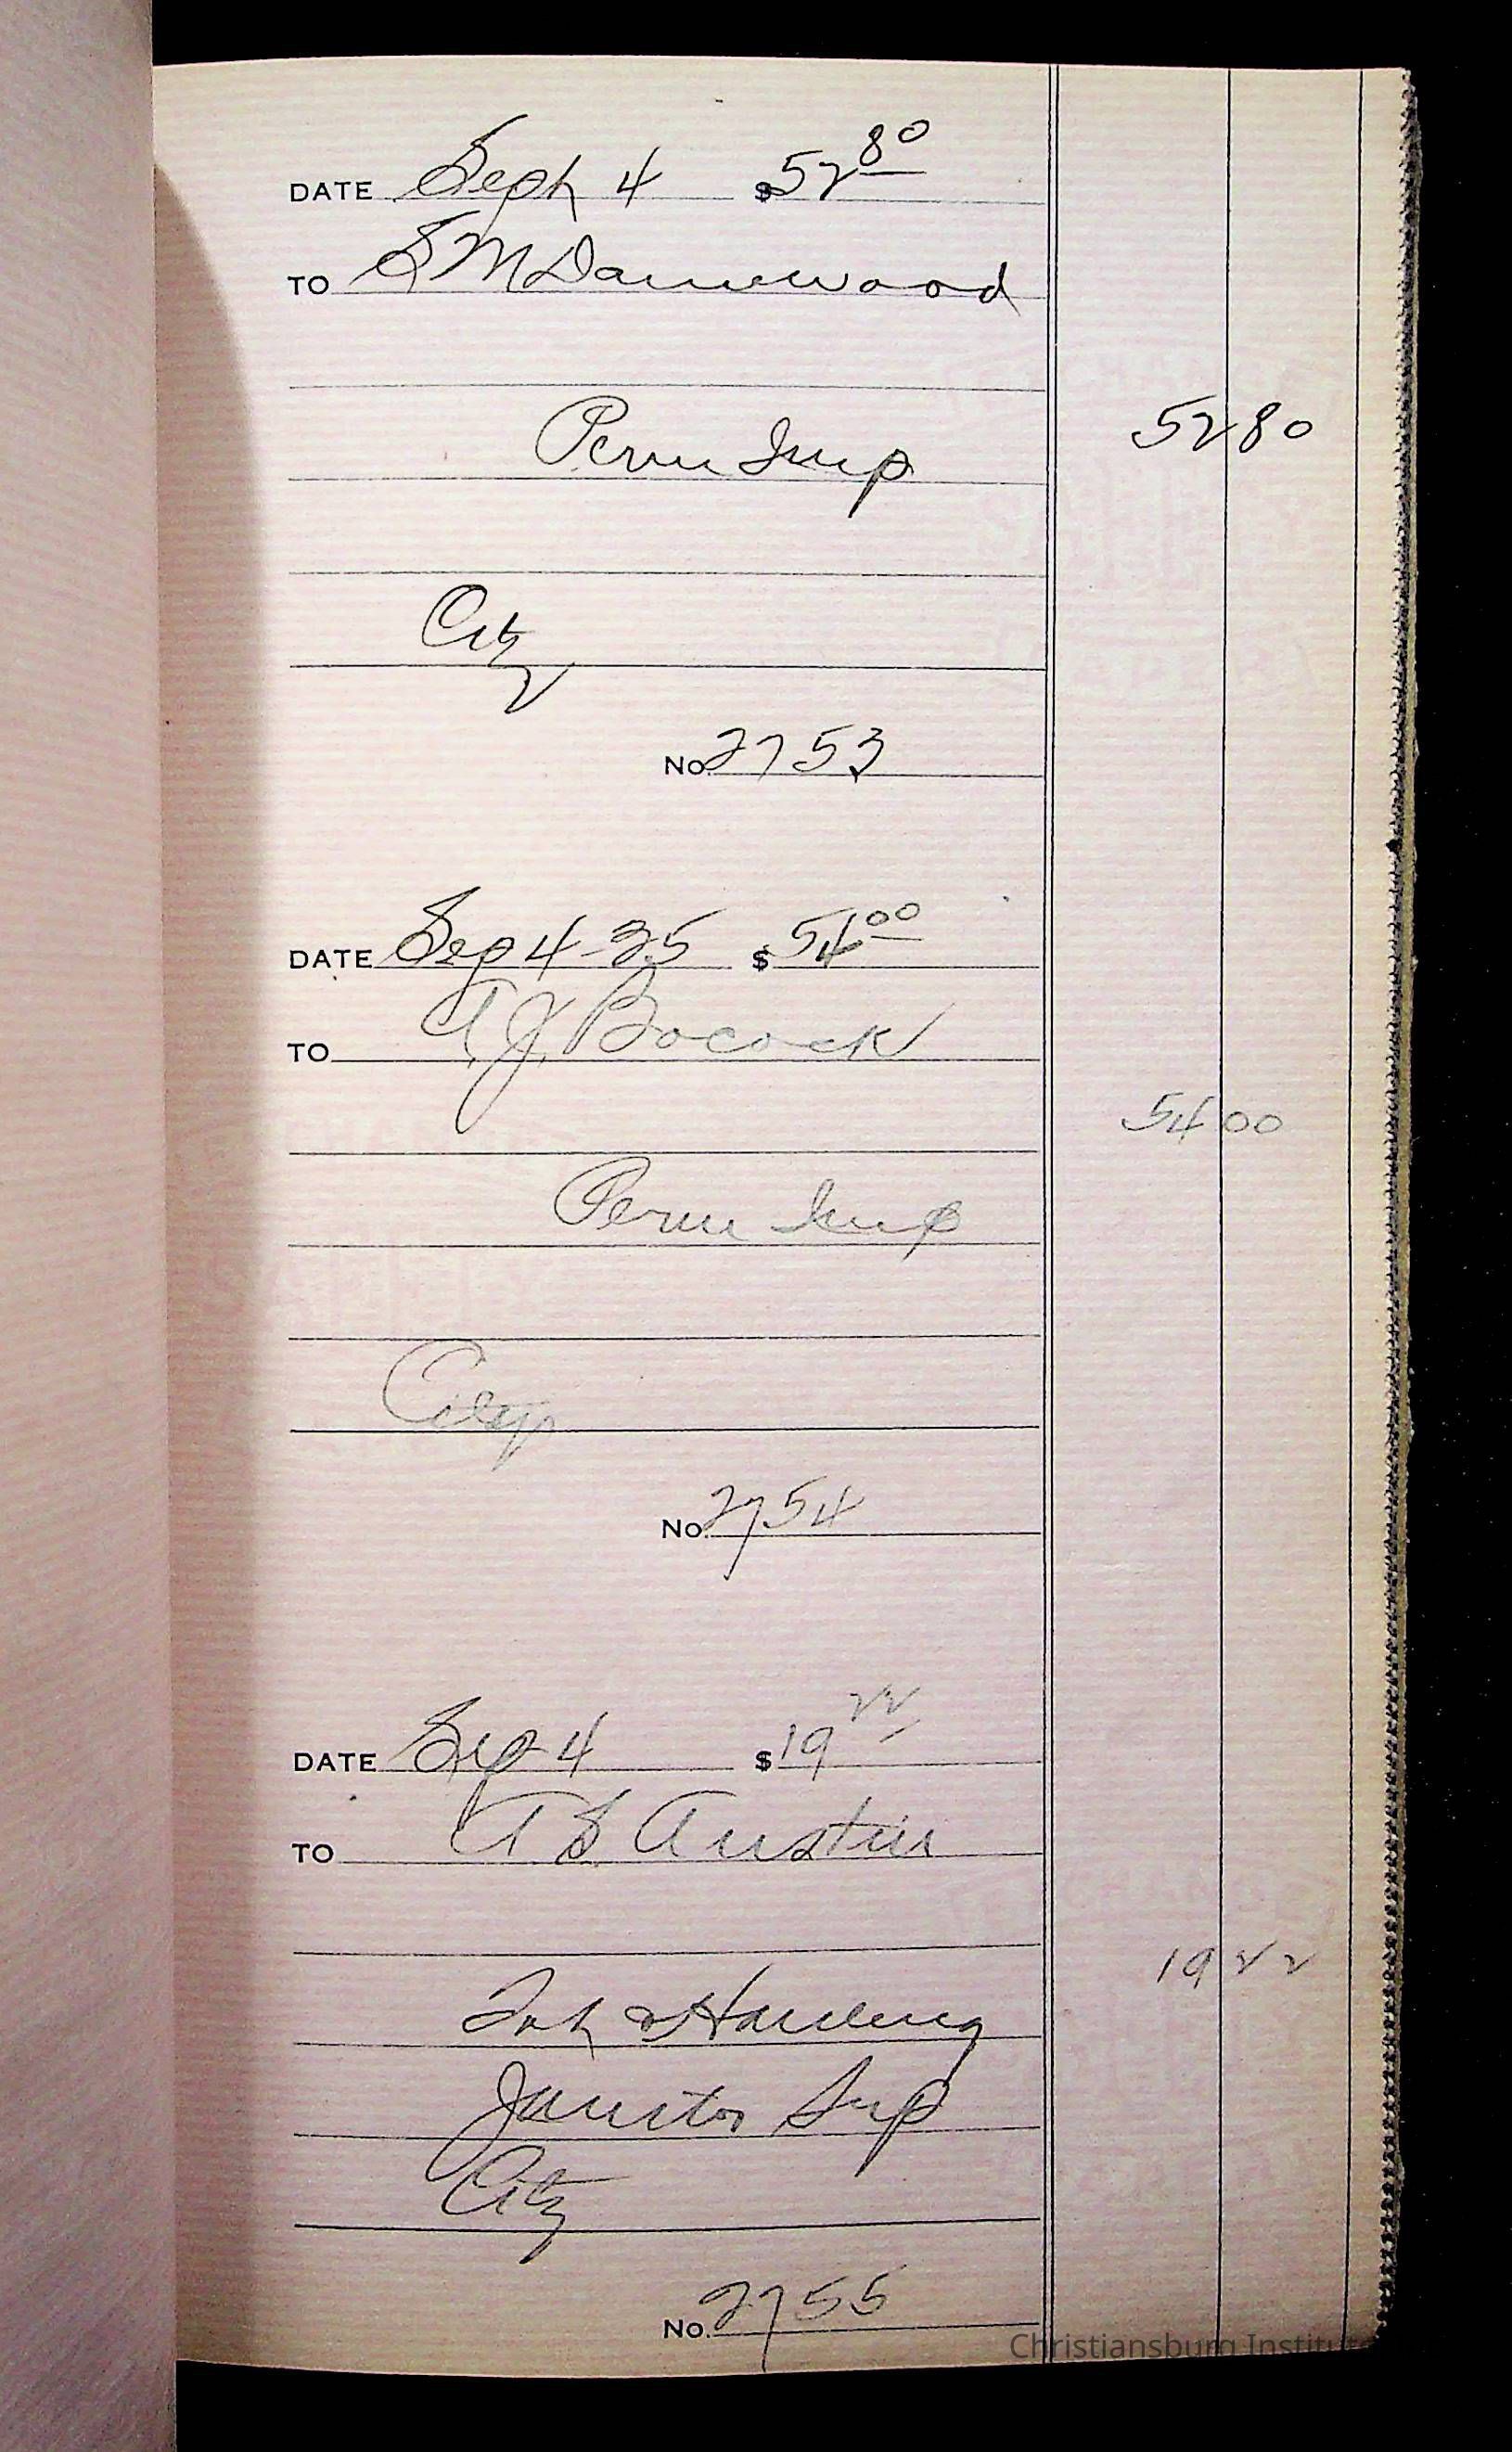 DATE Sept 4 $52 80
TO S M Damewood
Perm Imp 52 80
City
No. 2753
DATE Sep 4-25 $54 00
TO A.J. Bocock
54 00
Perm Imp
City
No. 2754
DATE Sep 4 $19 22
TO A S Austin
19 22
& Hauling
Janitor Sup
City
No. 2755
Christiansburg Institute